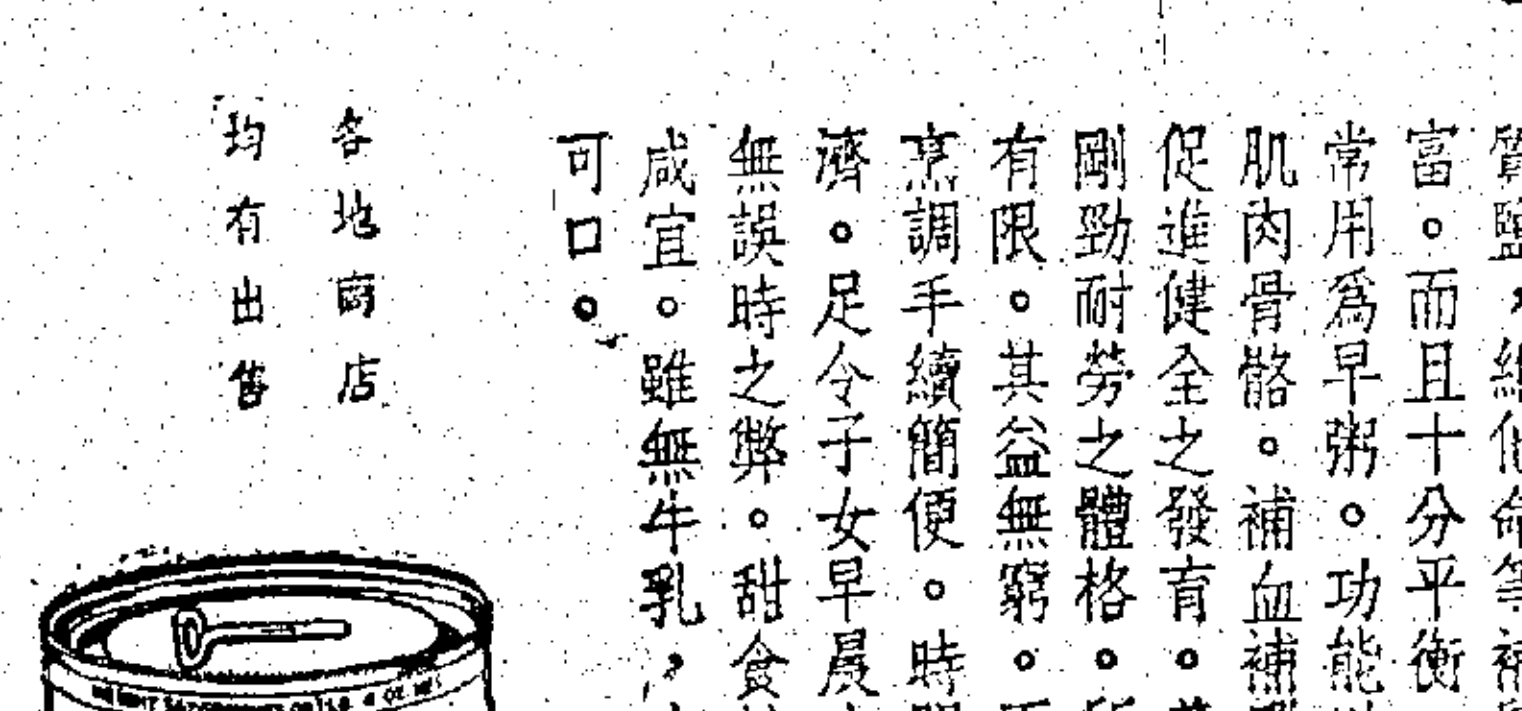 質鹽，維他命等補
富。而且十分平衡
常用爲早粥。功能
肌肉骨骼。補血補
促進健全之發育。
剛勁耐勞之體格。
有限。其益無窮。
烹調手續簡便。時
濟。足令子女早晨
無誤時之弊。甜食
咸宜。雖無牛乳，
可口。
各地商店
均有出售